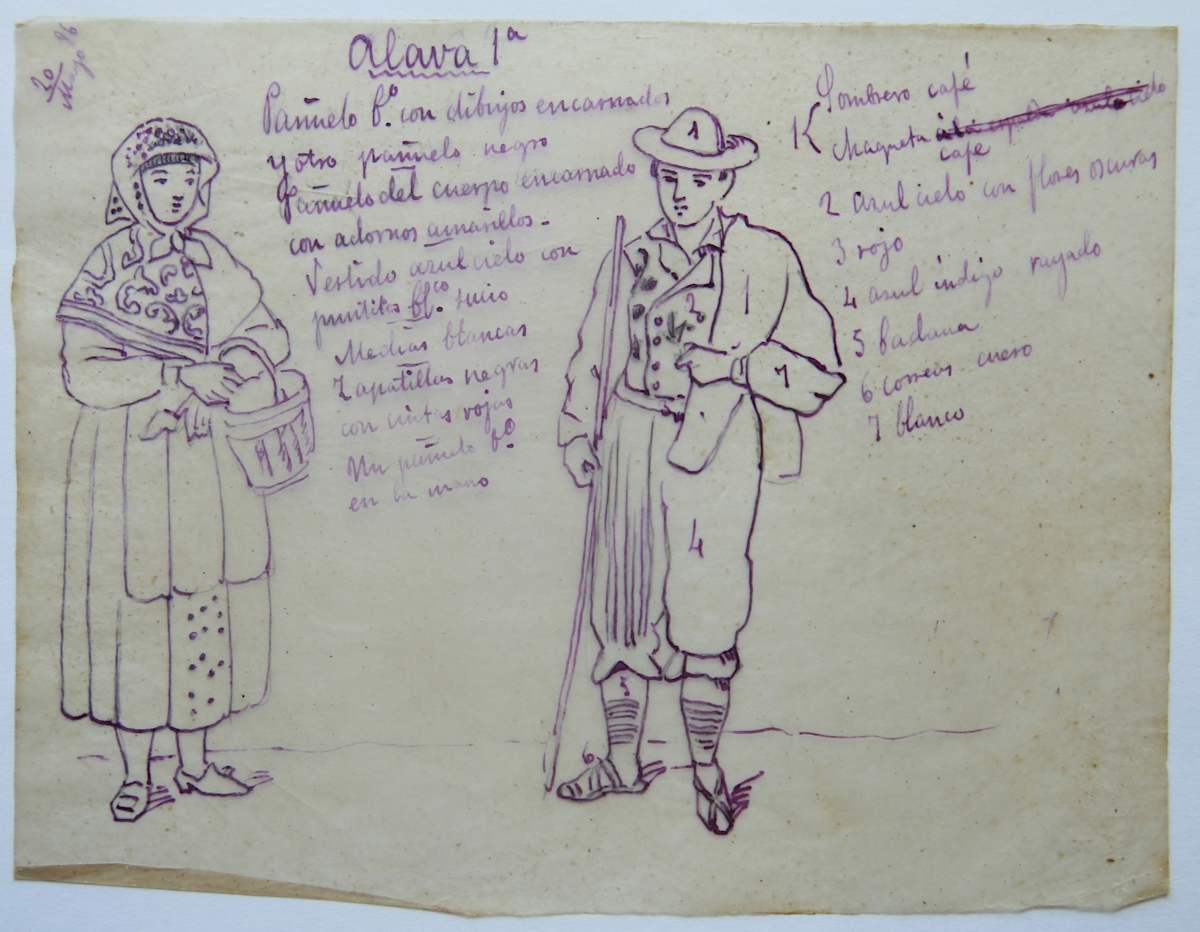 20
Mayo 96
Alava 1ª
Pañuelo b.º con dibujos encarnados
y otro pañuelo negro
Pañuelo del cuerpo encarnado
con adornos amarillos -
Vestido azul cielo con
puntitos bl.co sucio
Medias blancas
Zapatillas negras
con cintas rojas
Un pañuelo b.º
en la mano
1 Sombrero café
Chaqueta
café
2 azul cielo con flores oscuras
3 rojo
4 azul indigo rayado
5 badana
6 correas cuero
7 blanco
1
2
1
7
7
4
5
6